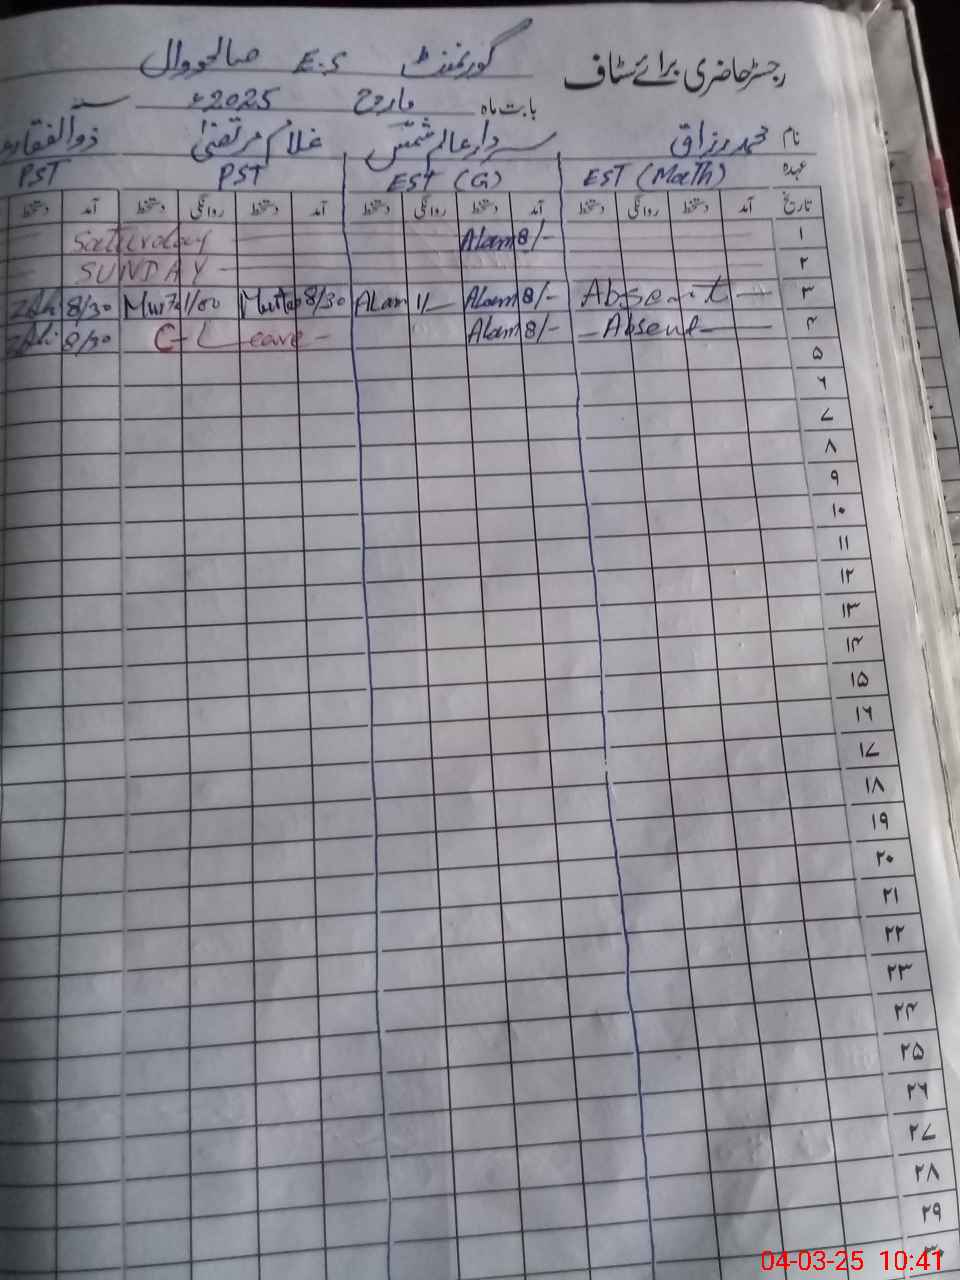 رجسٹر حاضری برائے سٹاف گورنمنٹ E.S صالحووال
بابت ماہ مارچ 2025ء
نام محمد رزاق سردار عالم شمس غلام مرتضیٰ ذوالفقار
عہدہ EST (Math) EST (G) PST PST
تاریخ آمد دستخط روانگی دستخط آمد دستخط روانگی دستخط آمد دستخط روانگی دستخط آمد دستخط
۱ Alam 8/- Saturday
۲ SUNDAY
۳ Absent Alam 8/- Alam 11/- 8/30 8/30
۴ Absent Alam 8/- C-Leave 8/30
۵
۶
۷
۸
۹
۱۰
۱۱
۱۲
۱۳
۱۴
۱۵
۱۶
۱۷
۱۸
۱۹
۲۰
۲۱
۲۲
۲۳
۲۴
۲۵
۲۶
۲۷
۲۸
۲۹
۳۰
04-03-25 10:41